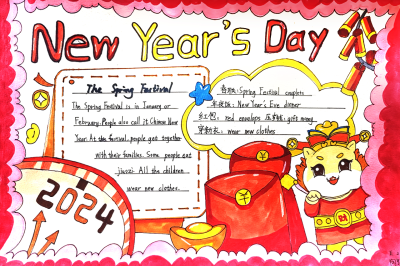 New Year's Day
The Spring Festival
The Spring Festival is in January or
February. People also call it Chinese New
Year. At this festival, people get together
with their families. Some people eat
jiaozi. All the children
wear new clothes.
春联: Spring Festival couplets
年夜饭: New Year's Eve dinner
红包: red envelops 压岁钱: gift money
穿新衣: wear new clothes
2024
¥
¥
財